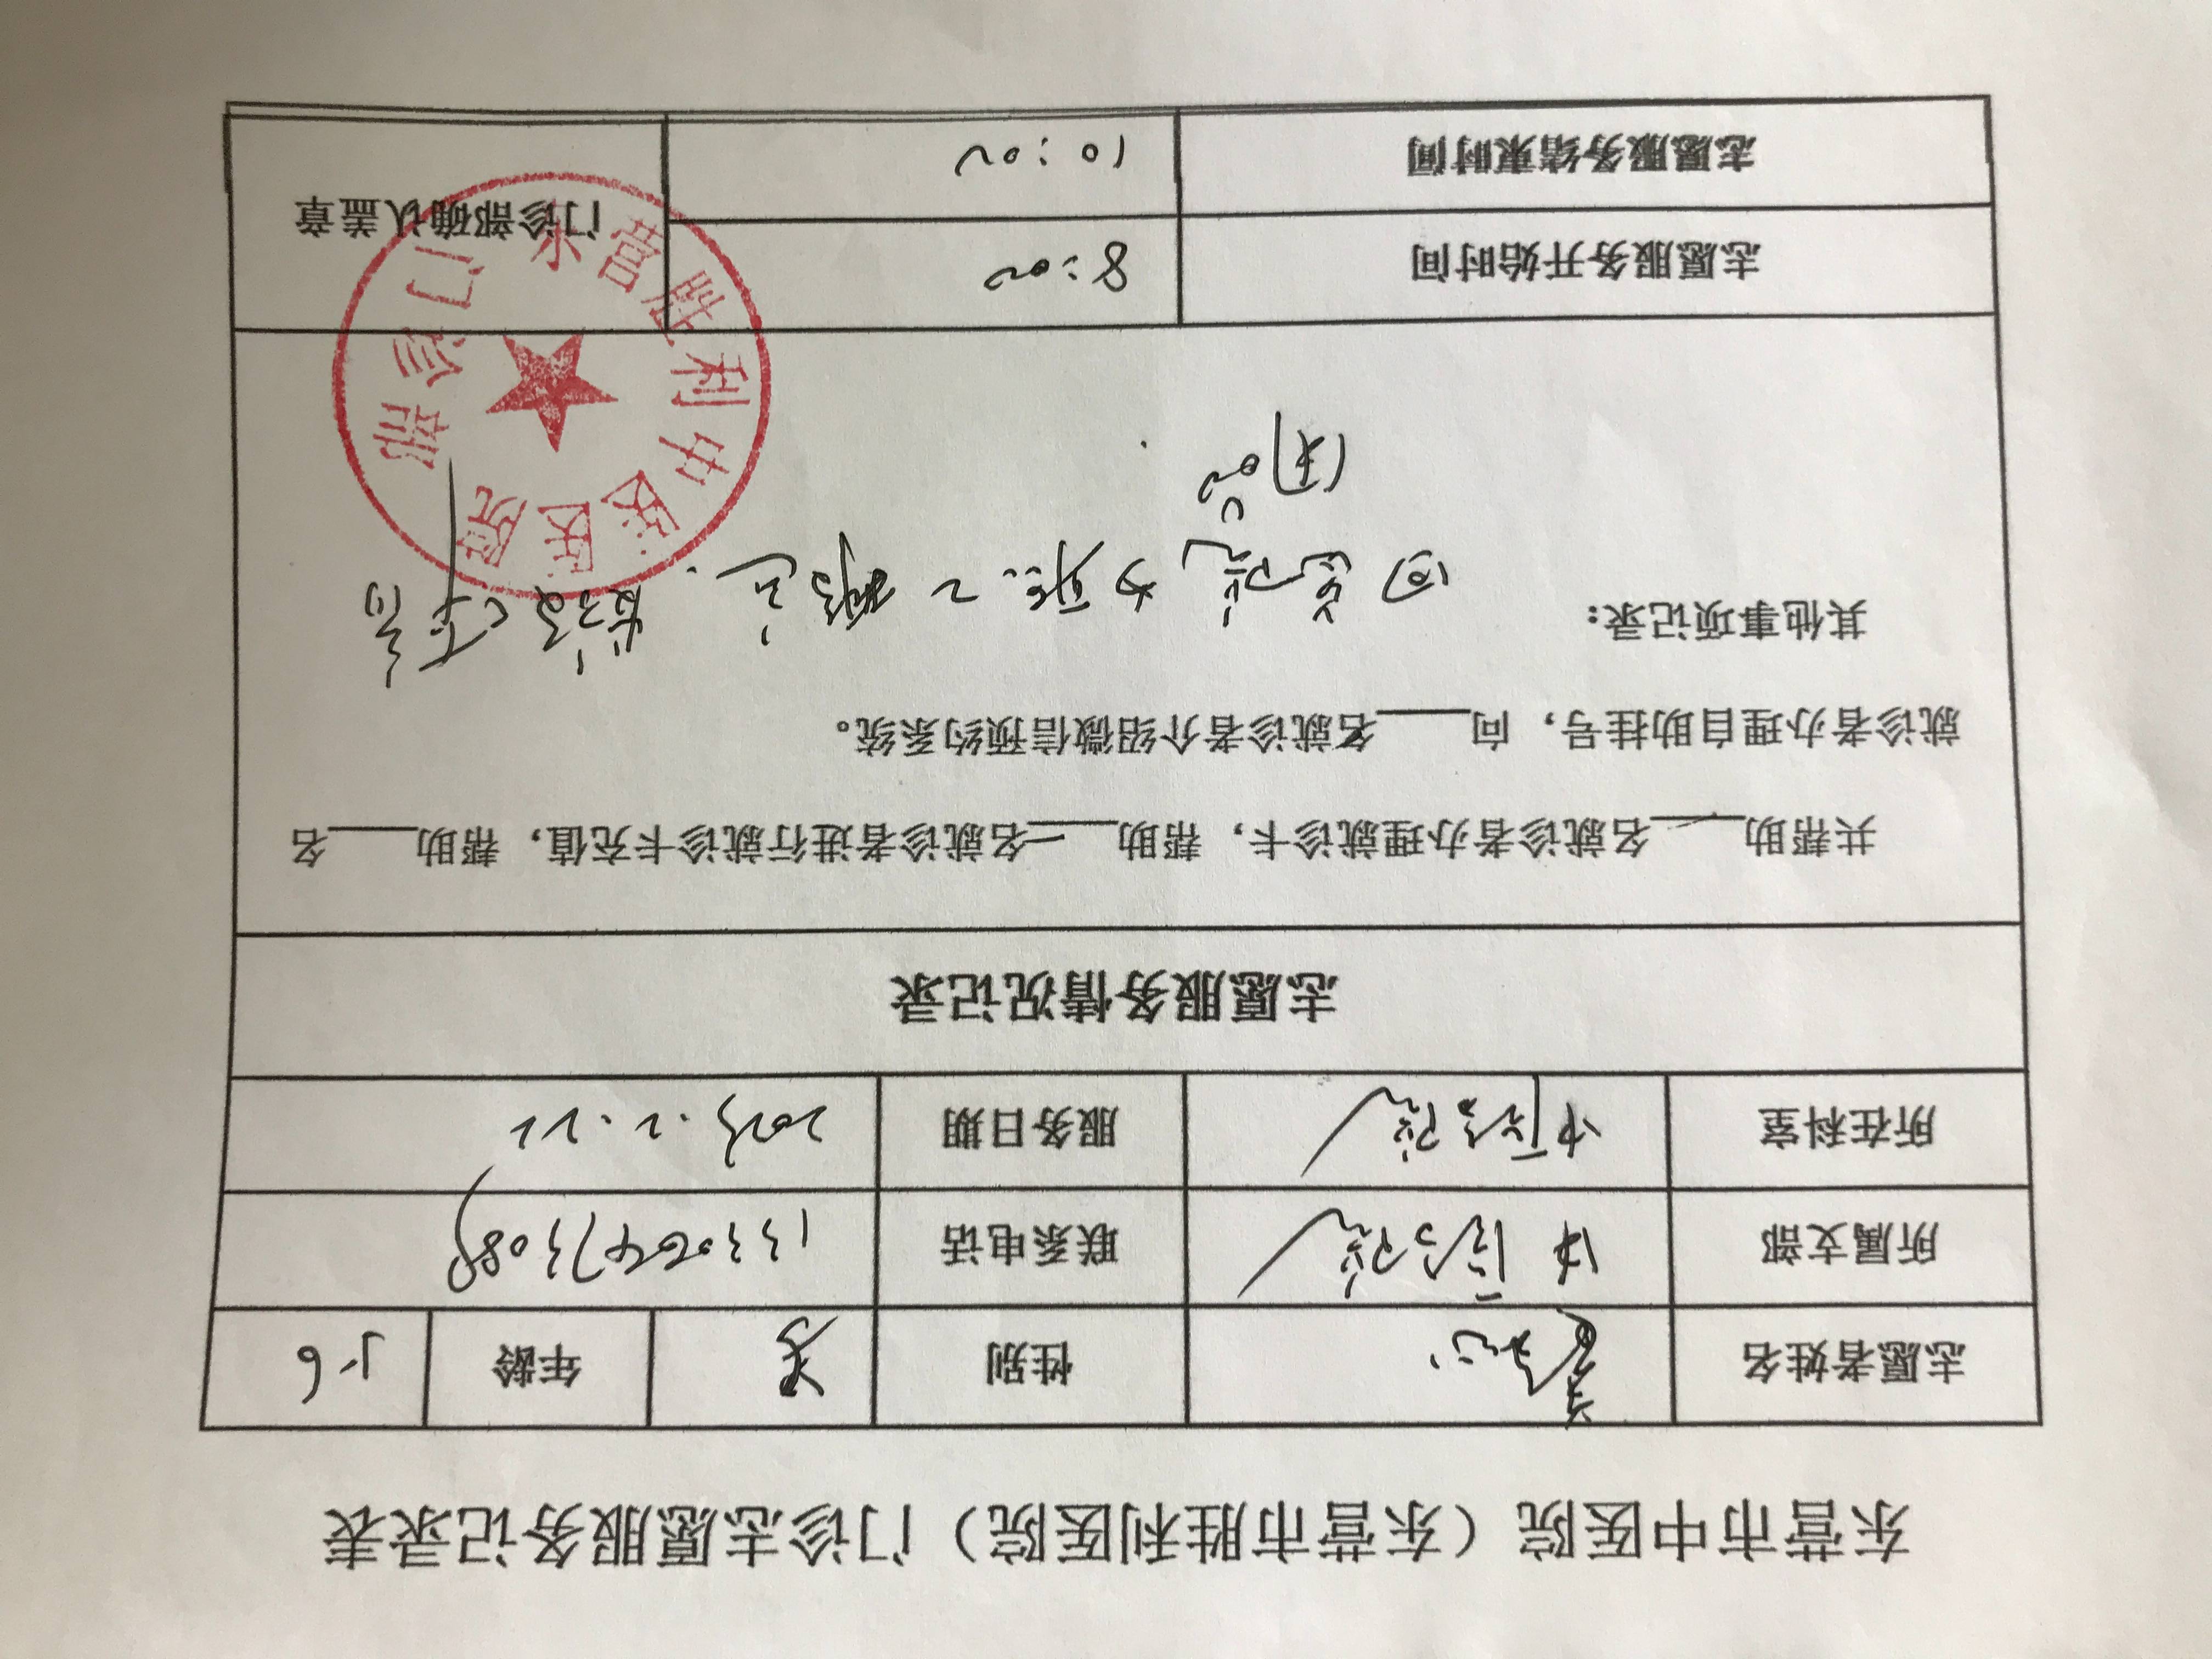 东营市中医院（东营市胜利医院）门诊志愿服务记录表
志愿者姓名 性别 年龄 56
所属支部 联系电话 13306473089
所在科室 服务日期 2023.2.22
志愿服务情况记录
共帮助____名就诊者办理就诊卡，帮助____名就诊者进行就诊卡充值，帮助____名
就诊者办理自助挂号，向____名就诊者介绍微信预约系统。
其他事项记录：
志愿服务开始时间 8:00 门诊部确认盖章
志愿服务结束时间 10:00
东营胜利中医医院
门诊部